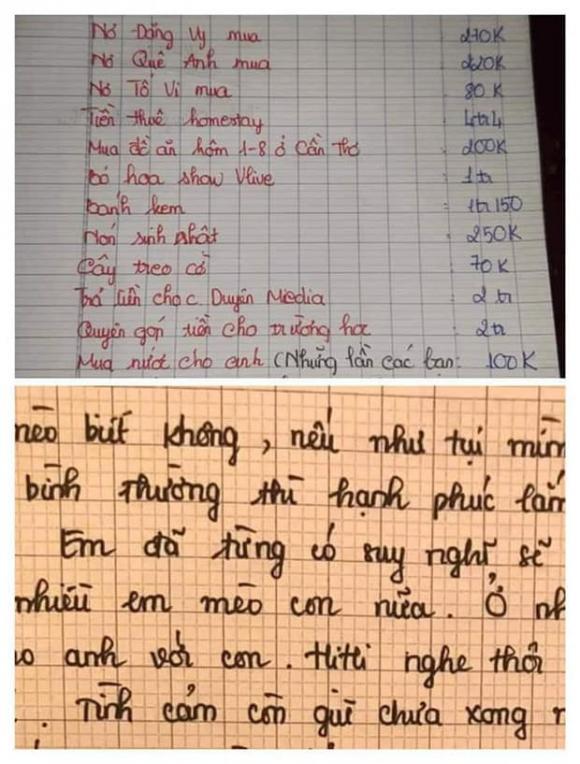 Nợ Đặng Vy mua : 270K
Nợ Quế Anh mua : 220K
Nợ Tố Vi mua : 80K
Tiền thuê homestay : 4tr4
Mua đồ ăn hôm 1-8 ở Cần Thơ : 200K
bó hoa show Vlive : 1tr
bánh kem : 1tr150
Nón sinh nhật : 250K
Cây treo cờ : 70K
Trả tiền cho c. Duyên Media : 2tr
Quyên góp tiền cho trường học : 2tr
Mua nước cho anh (Những lần các bạn : 100K
mèo biết không, nếu như tụi mìn
bình thường thì hạnh phúc lắm
Em đã từng có suy nghĩ sẽ
nhiều em mèo con nữa. Ở nh
anh với con. HiHi nghe thôi
. Tình cảm còn gửi chưa xong